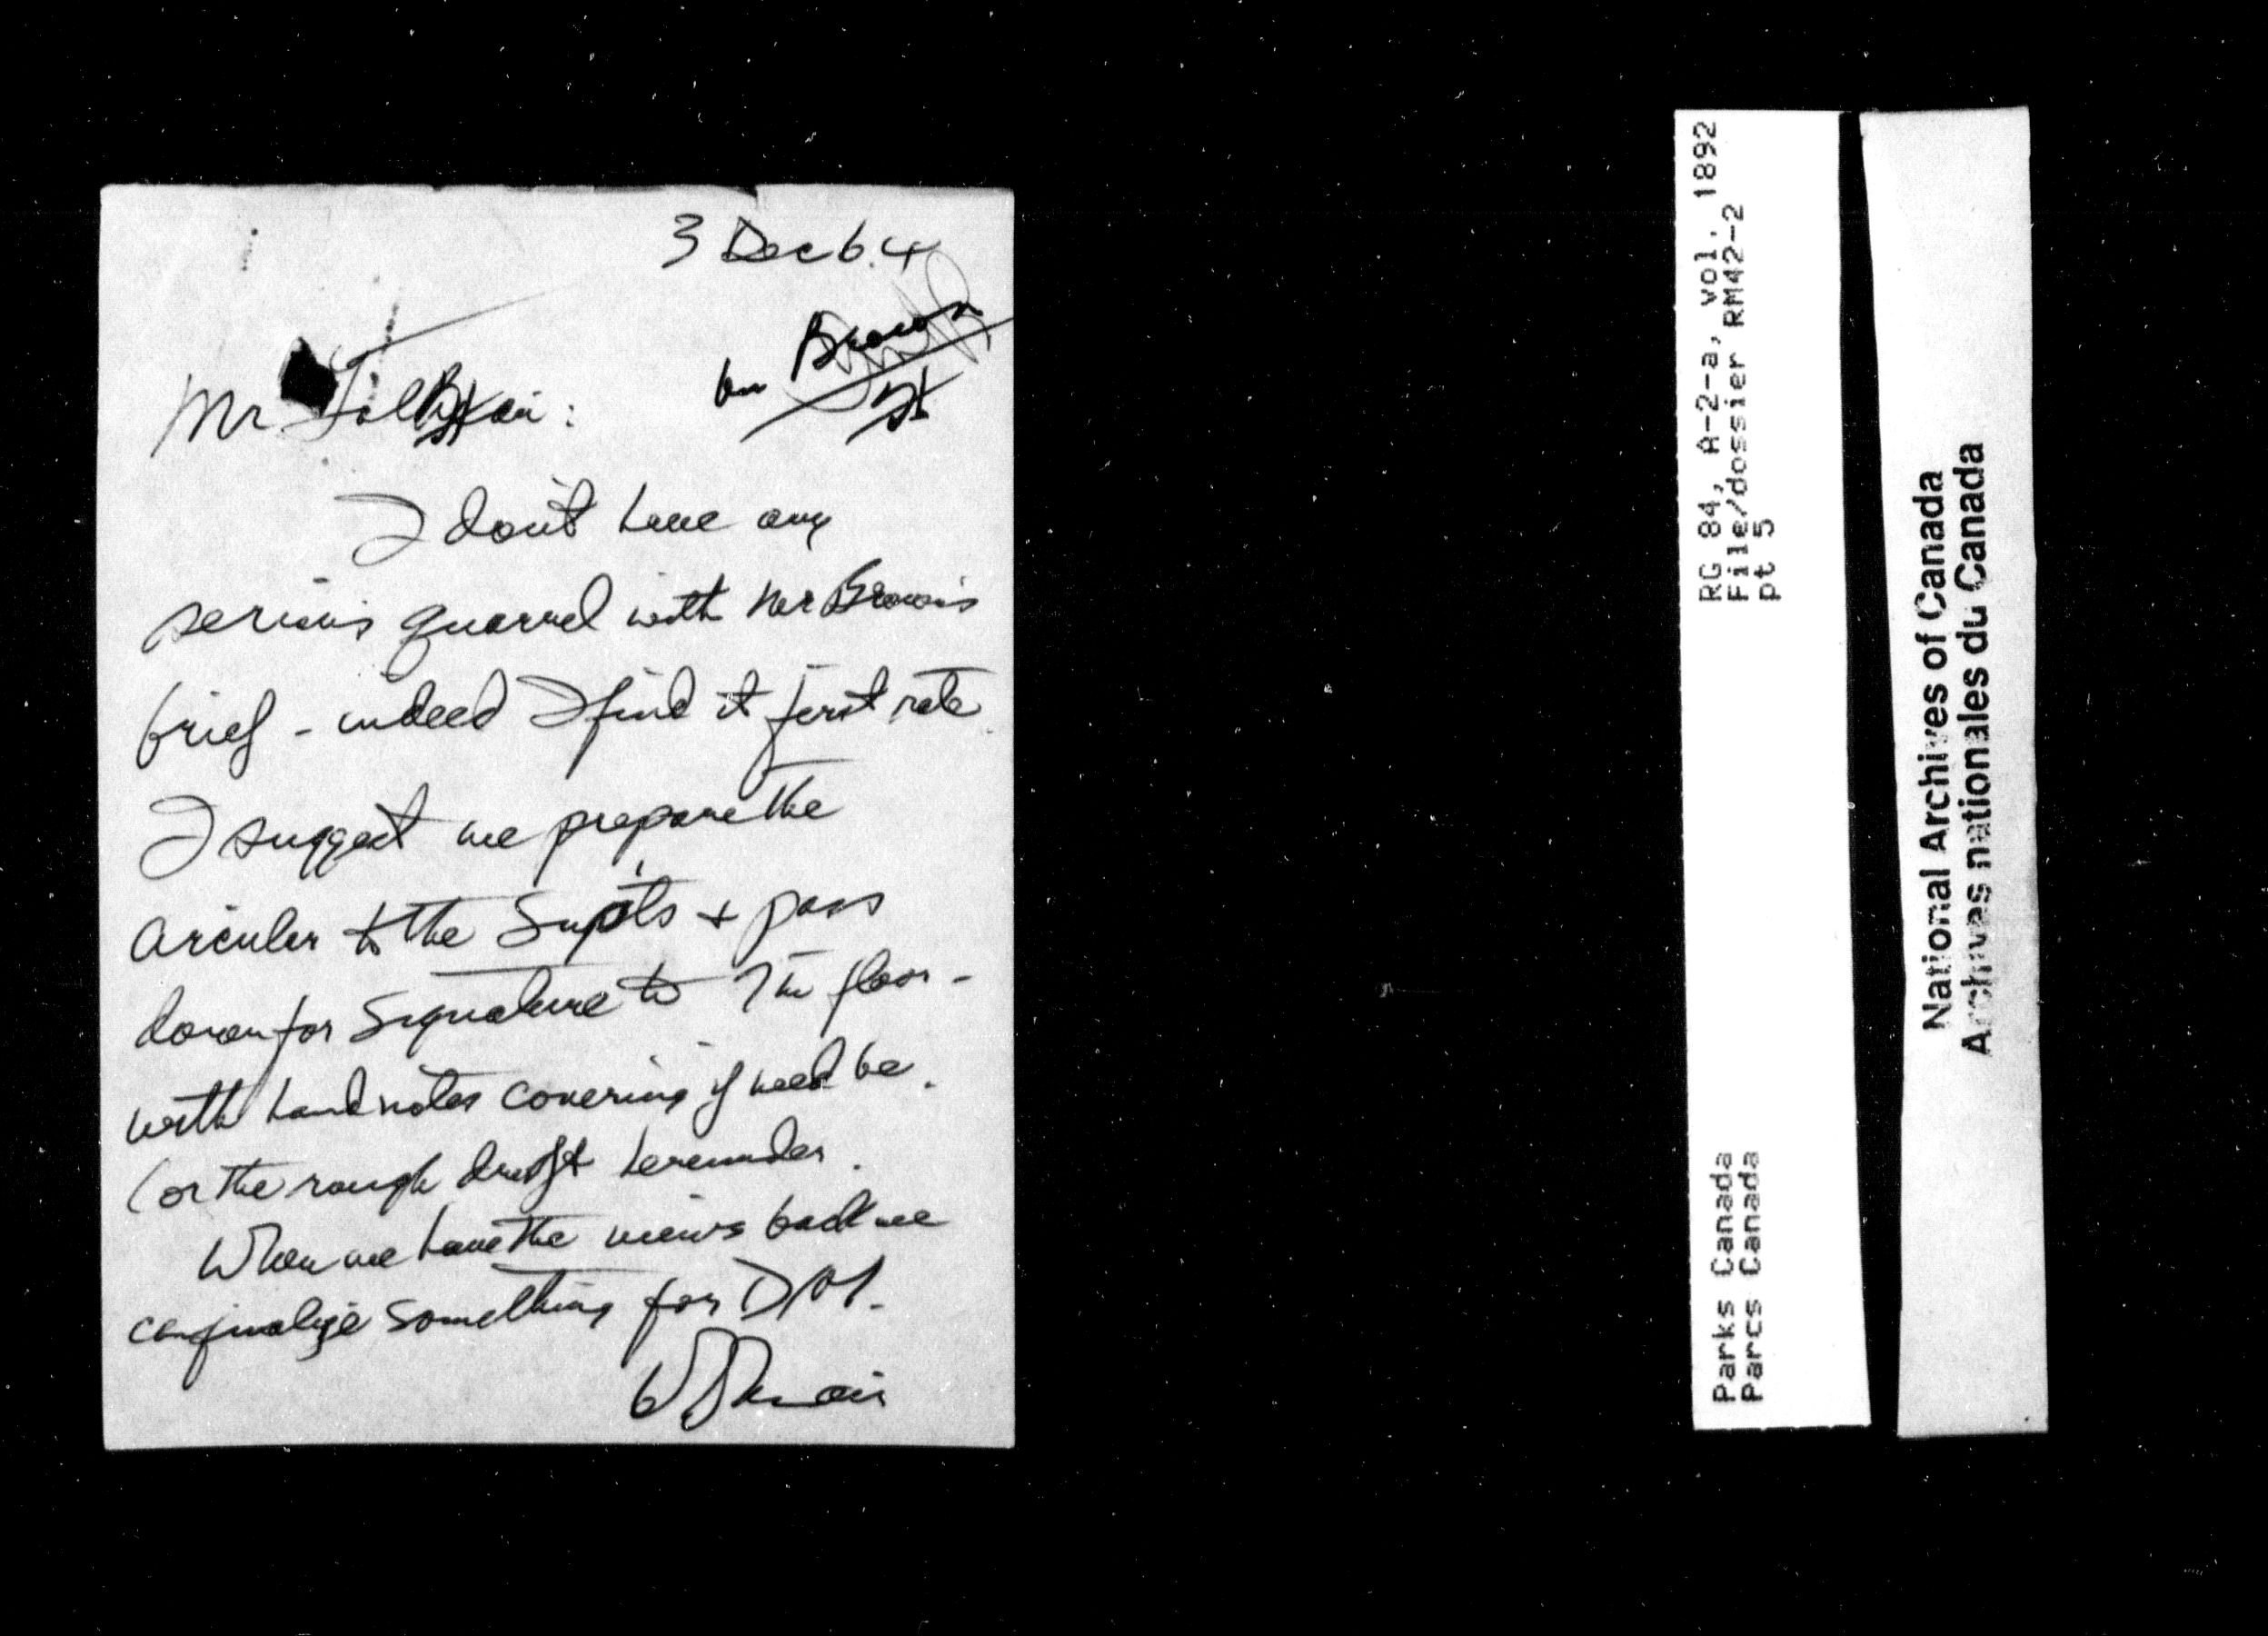 3 Dec 64
Mr Brown
Mr
I don't have any
serious quarrel with Mr Brown's
brief - indeed I find it first rate.
I suggest we prepare the
circular to the Sup'ts + pass
down for signature to 7th floor -
with hand notes covering if need be.
(or the rough draft hereunder.
When we have the views back we
can finalize something for DM.
RG 84, A-2-a, vol. 1892
File/dossier RM42-2
pt 5
Parks Canada
Parcs Canada
National Archives of Canada
Archives nationales du Canada